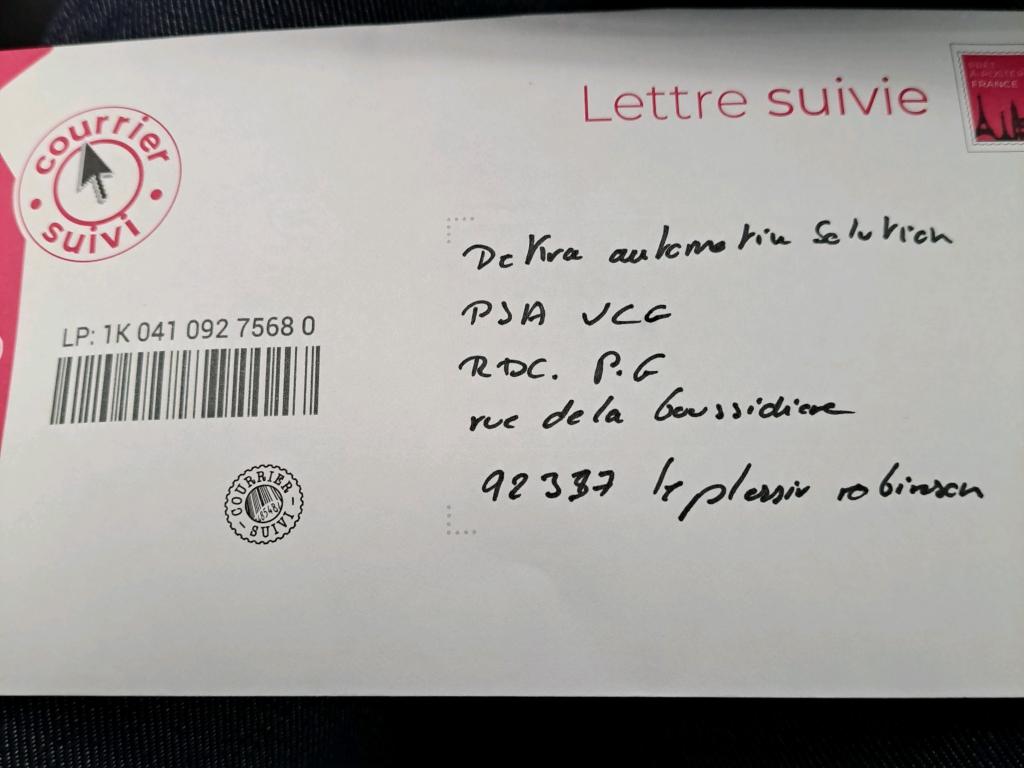 Lettre suivie
PRÊT
À POSTER
FRANCE
courrier
suivi
LP: 1K 041 092 7568 0
COURRIER
SUIVI
Dekra automotiv Solution
PSA VCG
RDC. P.G
rue de la Goussidiere
92337 le plessiv robinson